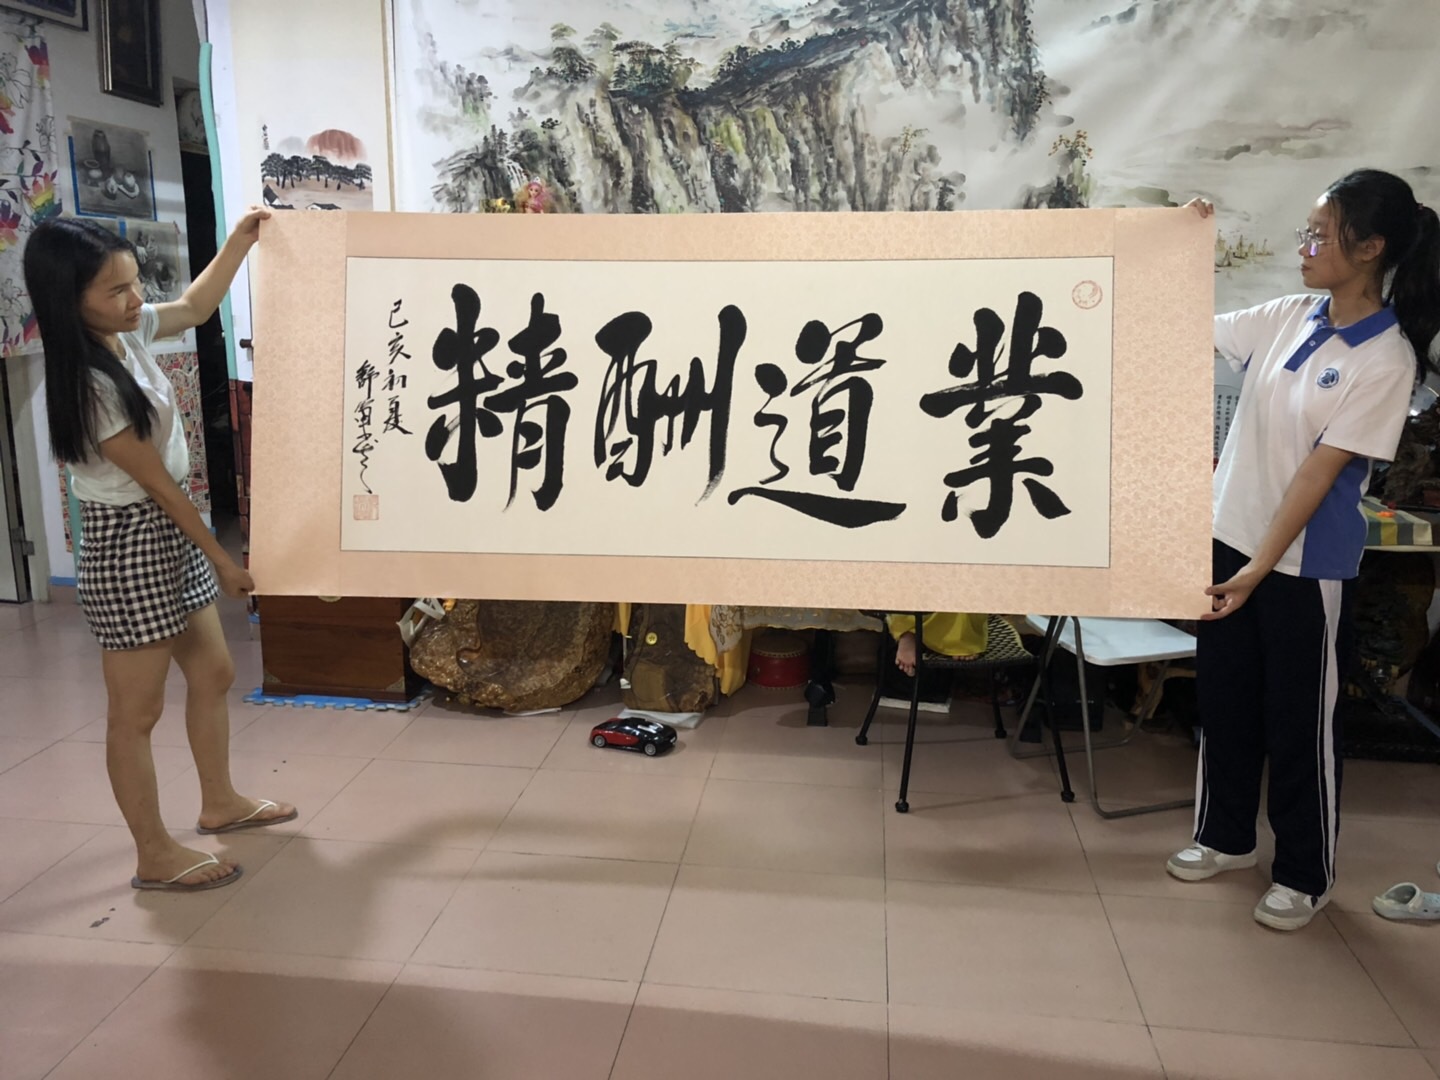 業道酬精
己亥初夏